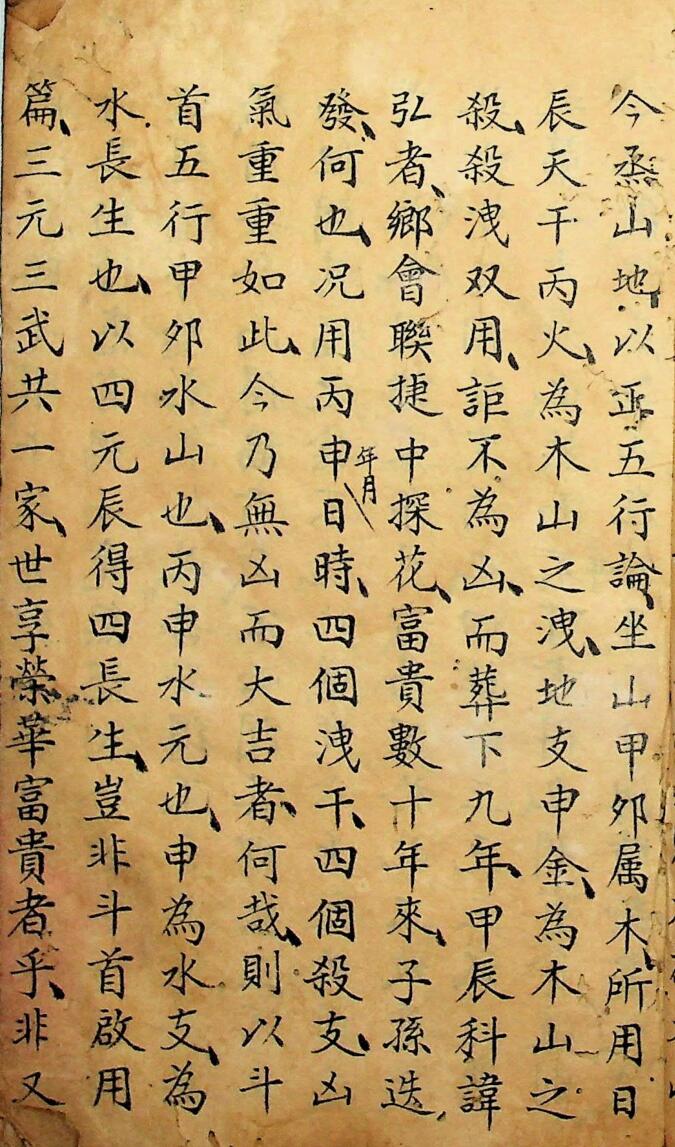 今烝山地、以正五行論、坐山甲夘属木、所用日
辰天干丙火、為木山之洩、地支申金、為木山之
殺、殺洩双用、詎不為凶、而葬下九年、甲辰科諱
弘者、鄉會聯捷中探花、富貴數十年來、子孫迭
發、何也、况用丙申年月日時、四個洩干、四個殺支、凶
氣重重如此、今乃無凶而大吉者、何哉、則以斗
首五行甲夘水山也、丙申水元也、申為水支、為
水長生也、以四元辰得四長生、豈非斗首啟用
篇、三元三武共一家、世享榮華富貴者乎、非又